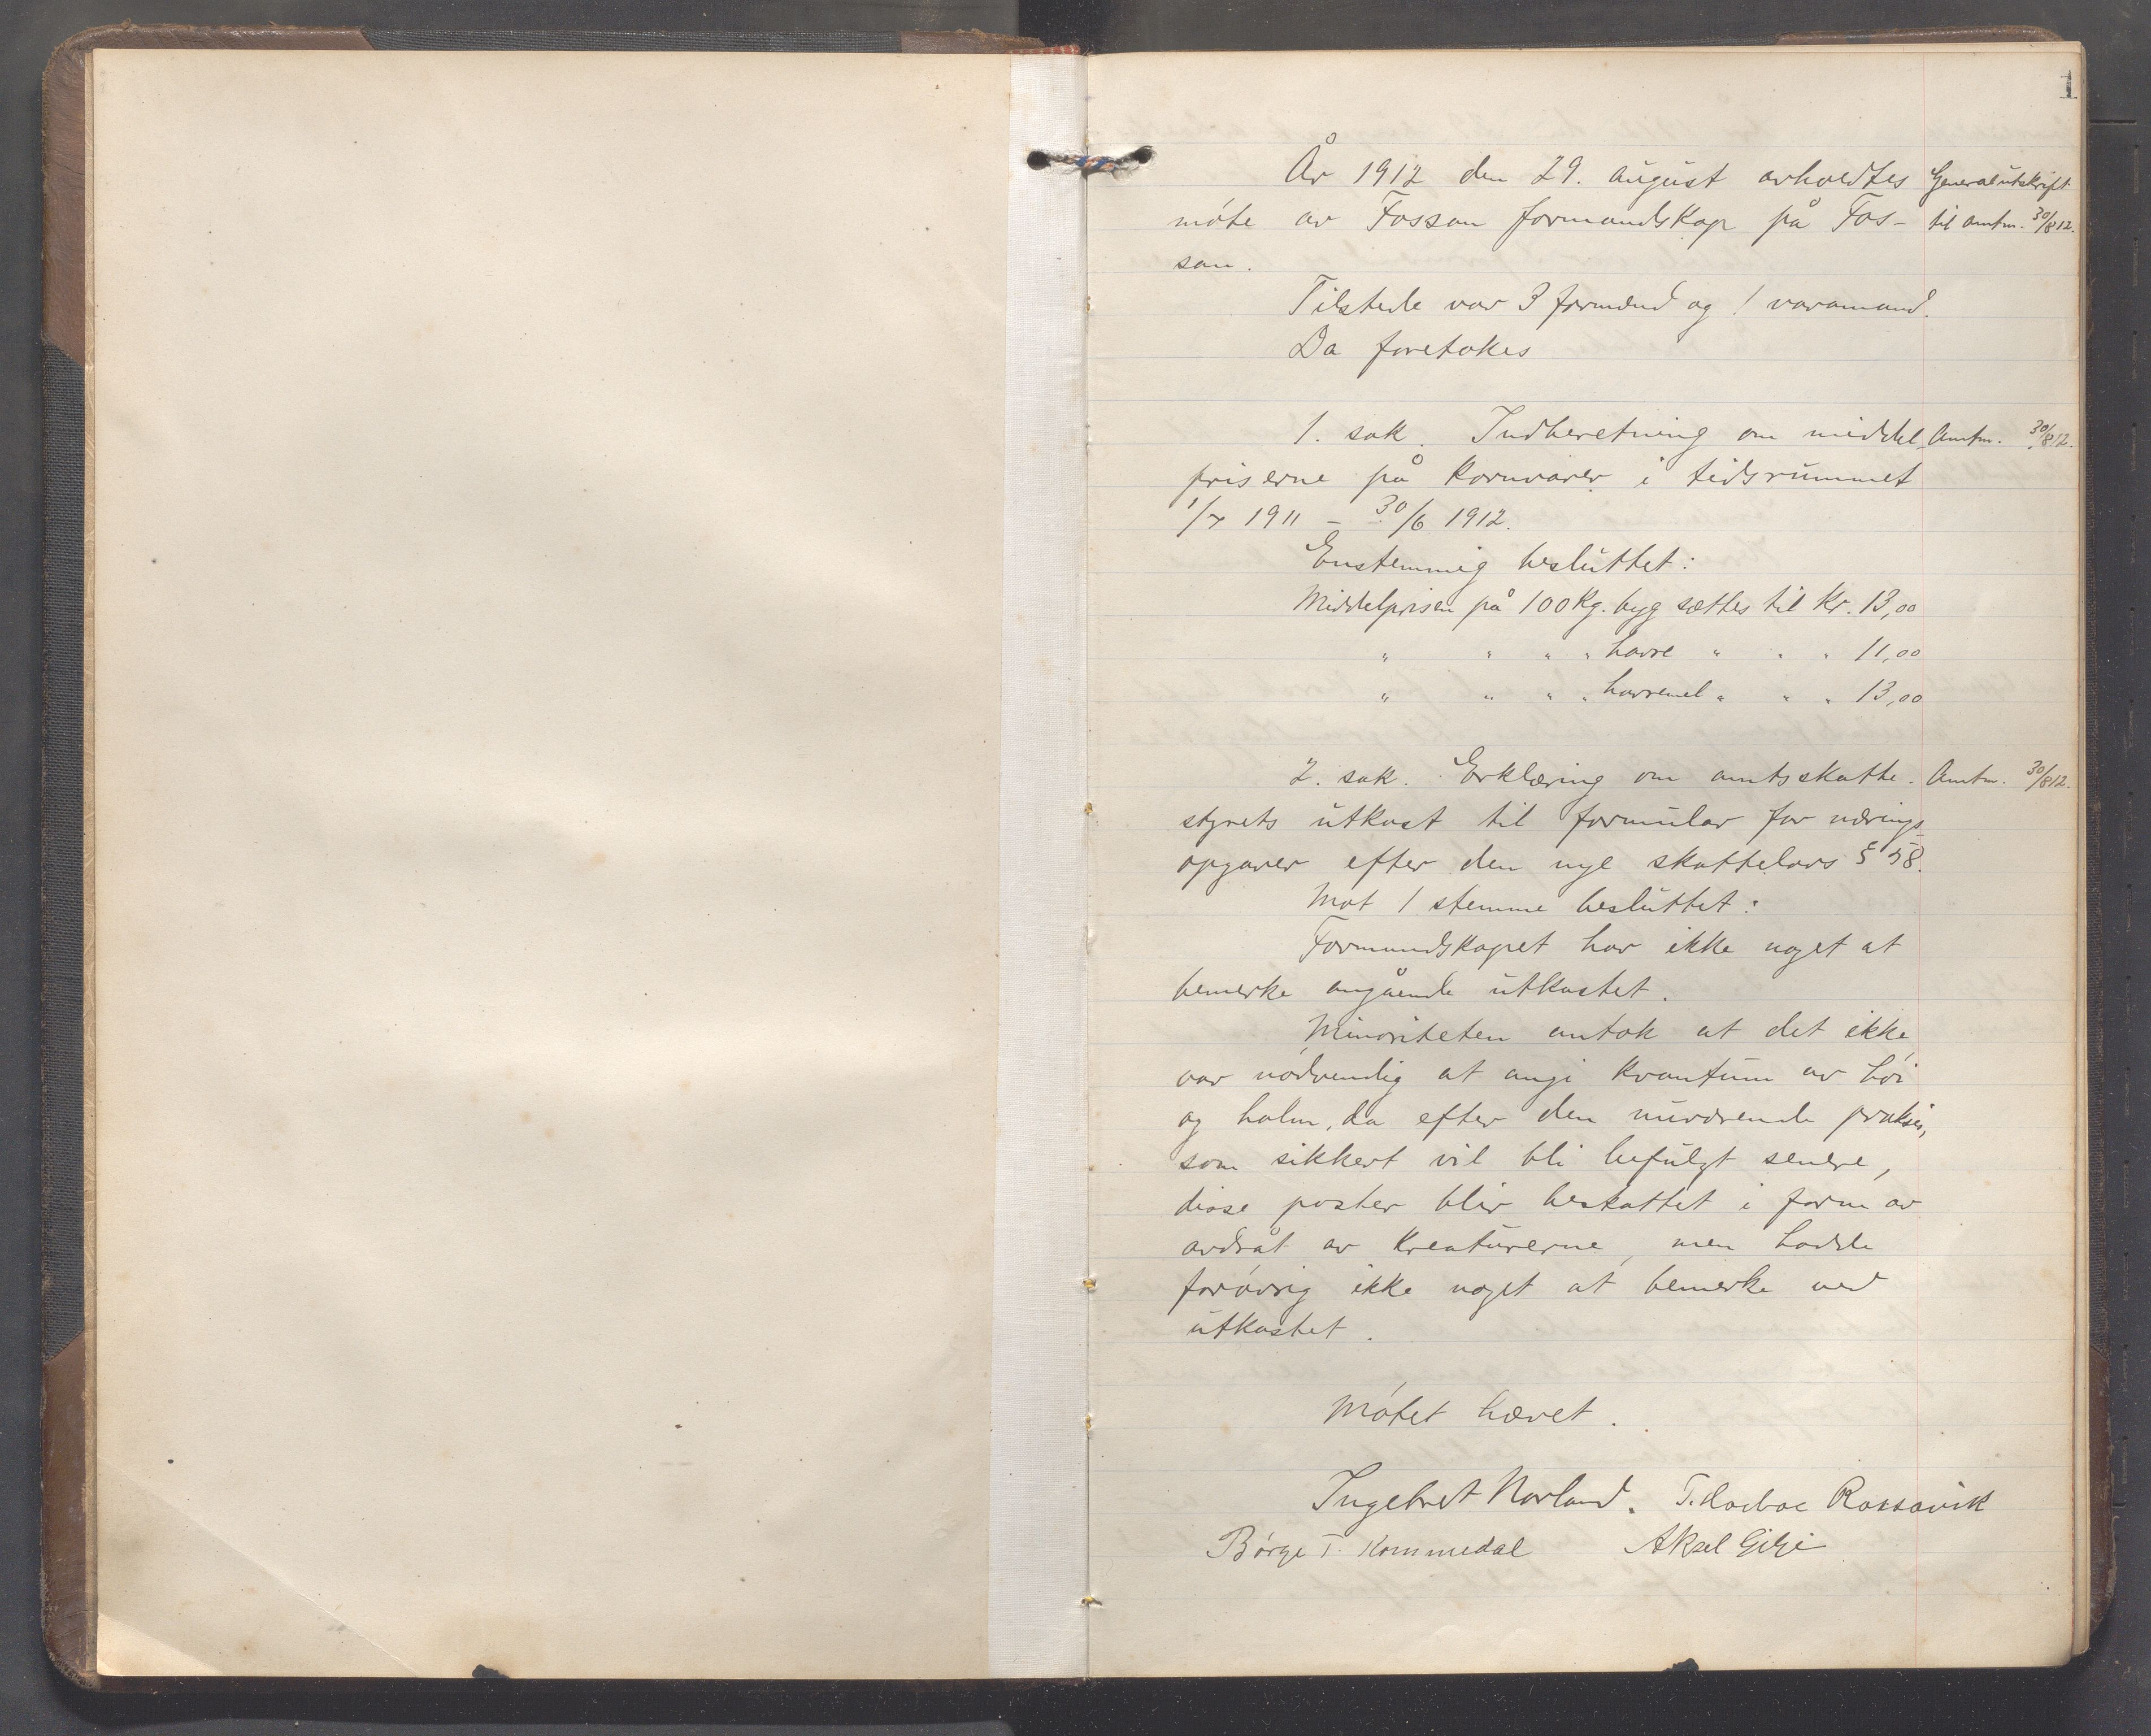 1
År 1912 den 29. august avholdtes
Generalutskrift
møte av Fossan formandskap på Fos-
til amtm. 30/8 12.
san.
Tilstede var 3 formænd og 1 varamand.
Da foretokes
1. sak. Indberetning om middel
Amtm. 30/8 12.
priserne på kornvarer i tidsrummet
1/7 1911 – 30/6 1912.
Enstemmig besluttet:
Middelprisen på 100 kg. byg sættes til kr. 13,00
" " " " havre " " " 11,00
" " " " havremel " " " 13,00
2. sak. Erklæring om amtsskatte-
Amtm. 30/8 12.
styrets utkast til formular for nærings-
opgaver efter den nye skattelovs § 58.
Mot 1 stemme besluttet:
Formandskapet har ikke noget at
bemerke angående utkastet.
Minoriteten antok at det ikke
var nødvendig at angi kvantum av høi
og halm, da efter den nuværende praksis,
som sikkert vil bli befulgt senere,
disse poster blir beskattet i form av
avdråt av kreaturerne, men hadde
forøvrig ikke noget at bemerke ved
utkastet.
Møtet hævet.
Ingebret Norland. T. Rossavik
Børge T. Kommedal Aksel Gilje